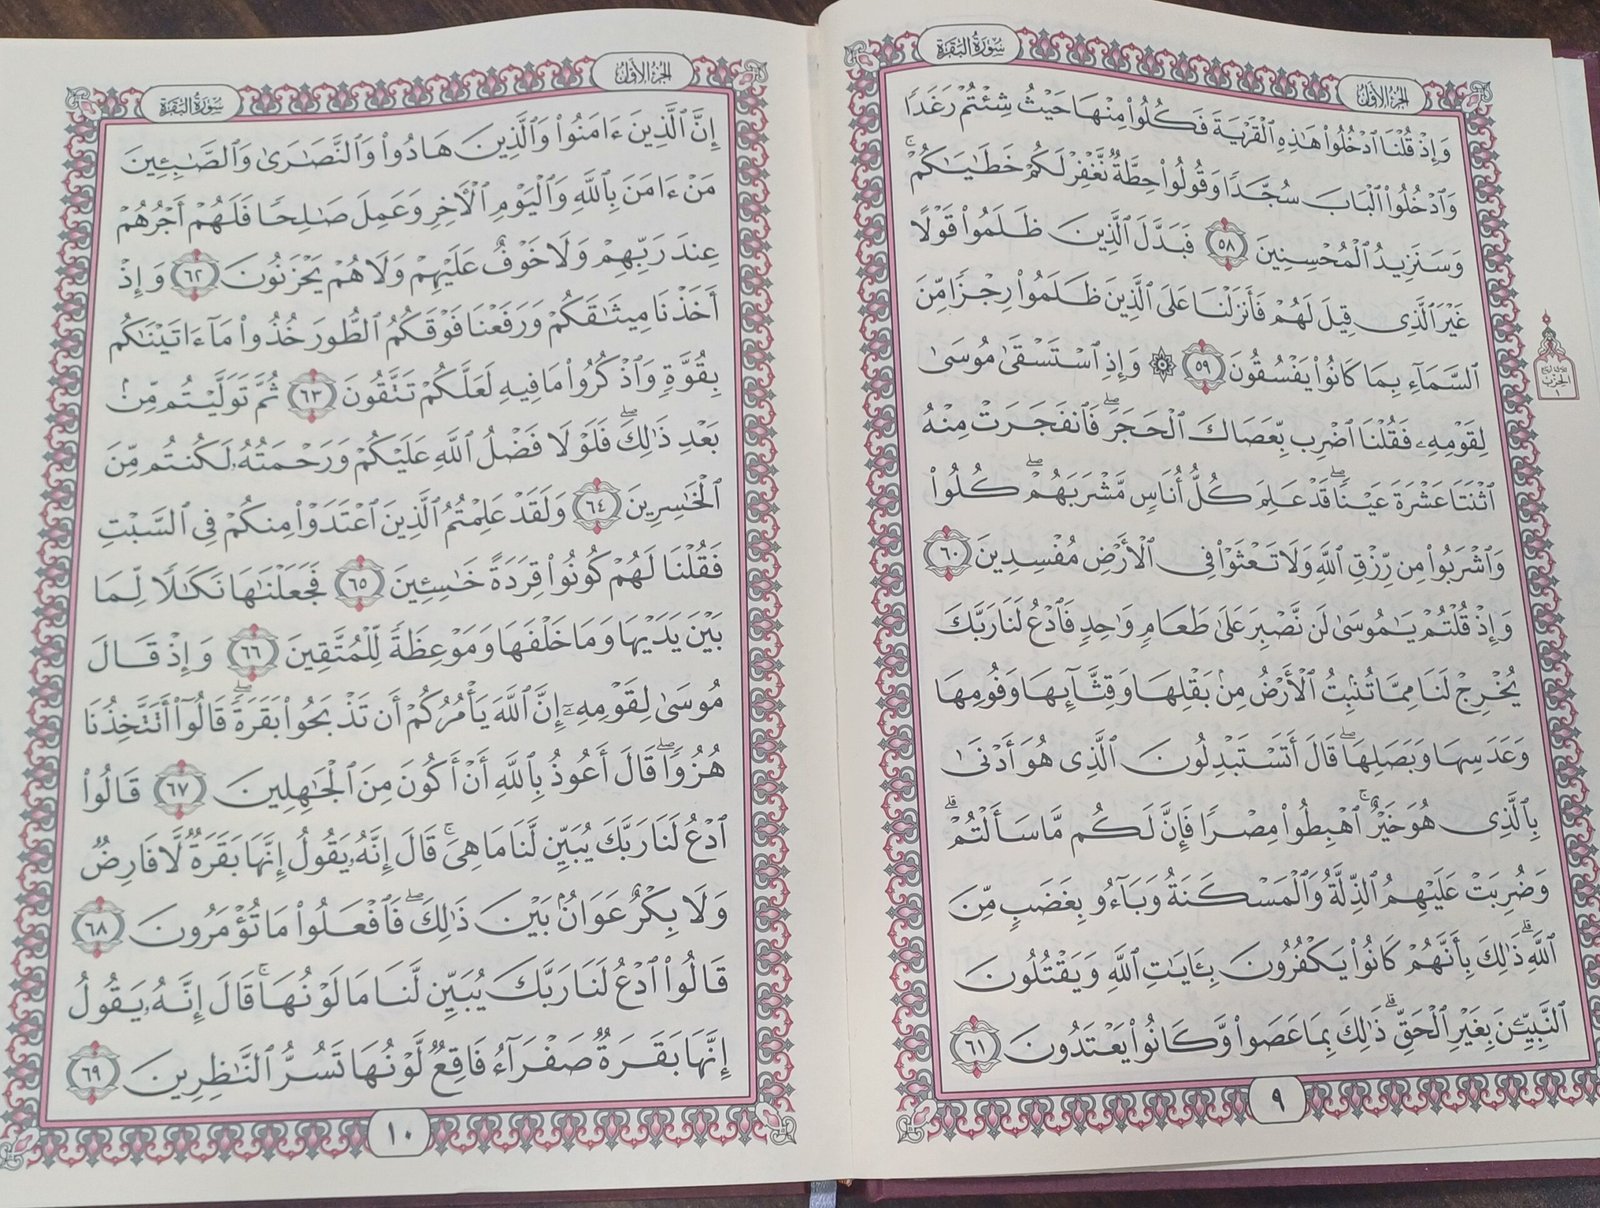 سُورَةُ البَقَرَةِ
الجُزْءُ الأَوَّلُ
وَإِذْ قُلْنَا ٱدْخُلُوا۟ هَٰذِهِ ٱلْقَرْيَةَ فَكُلُوا۟ مِنْهَا حَيْثُ شِئْتُمْ رَغَدًا
وَٱدْخُلُوا۟ ٱلْبَابَ سُجَّدًا وَقُولُوا۟ حِطَّةٌ نَّغْفِرْ لَكُمْ خَطَٰيَٰكُمْ ۚ
وَسَنَزِيدُ ٱلْمُحْسِنِينَ ٥٨ فَبَدَّلَ ٱلَّذِينَ ظَلَمُوا۟ قَوْلًا
غَيْرَ ٱلَّذِى قِيلَ لَهُمْ فَأَنزَلْنَا عَلَى ٱلَّذِينَ ظَلَمُوا۟ رِجْزًا مِّنَ
ٱلسَّمَآءِ بِمَا كَانُوا۟ يَفْسُقُونَ ٥٩ ۞ وَإِذِ ٱسْتَسْقَىٰ مُوسَىٰ
لِقَوْمِهِۦ فَقُلْنَا ٱضْرِب بِّعَصَاكَ ٱلْحَجَرَ ۖ فَٱنفَجَرَتْ مِنْهُ
ٱثْنَتَا عَشْرَةَ عَيْنًا ۖ قَدْ عَلِمَ كُلُّ أُنَاسٍ مَّشْرَبَهُمْ ۖ كُلُوا۟
وَٱشْرَبُوا۟ مِن رِّزْقِ ٱللَّهِ وَلَا تَعْثَوْا۟ فِى ٱلْأَرْضِ مُفْسِدِينَ ٦٠
وَإِذْ قُلْتُمْ يَٰمُوسَىٰ لَن نَّصْبِرَ عَلَىٰ طَعَامٍ وَٰحِدٍ فَٱدْعُ لَنَا رَبَّكَ
يُخْرِجْ لَنَا مِمَّا تُنۢبِتُ ٱلْأَرْضُ مِنۢ بَقْلِهَا وَقِثَّآئِهَا وَفُومِهَا
وَعَدَسِهَا وَبَصَلِهَا ۖ قَالَ أَتَسْتَبْدِلُونَ ٱلَّذِى هُوَ أَدْنَىٰ
بِٱلَّذِى هُوَ خَيْرٌ ۚ ٱهْبِطُوا۟ مِصْرًا فَإِنَّ لَكُم مَّا سَأَلْتُمْ ۗ
وَضُرِبَتْ عَلَيْهِمُ ٱلذِّلَّةُ وَٱلْمَسْكَنَةُ وَبَآءُو بِغَضَبٍ مِّنَ
ٱللَّهِ ۗ ذَٰلِكَ بِأَنَّهُمْ كَانُوا۟ يَكْفُرُونَ بِـَٔايَٰتِ ٱللَّهِ وَيَقْتُلُونَ
ٱلنَّبِيِّـۧنَ بِغَيْرِ ٱلْحَقِّ ۗ ذَٰلِكَ بِمَا عَصَوا۟ وَّكَانُوا۟ يَعْتَدُونَ ٦١
٩
الحِزْب
١
الجُزْءُ الأَوَّلُ
سُورَةُ البَقَرَةِ
إِنَّ ٱلَّذِينَ ءَامَنُوا۟ وَٱلَّذِينَ هَادُوا۟ وَٱلنَّصَٰرَىٰ وَٱلصَّٰبِـِٔينَ
مَنْ ءَامَنَ بِٱللَّهِ وَٱلْيَوْمِ ٱلْـَٔاخِرِ وَعَمِلَ صَٰلِحًا فَلَهُمْ أَجْرُهُمْ
عِندَ رَبِّهِمْ وَلَا خَوْفٌ عَلَيْهِمْ وَلَا هُمْ يَحْزَنُونَ ٦٢ وَإِذْ
أَخَذْنَا مِيثَٰقَكُمْ وَرَفَعْنَا فَوْقَكُمُ ٱلطُّورَ خُذُوا۟ مَآ ءَاتَيْنَٰكُم
بِقُوَّةٍ وَٱذْكُرُوا۟ مَا فِيهِ لَعَلَّكُمْ تَتَّقُونَ ٦٣ ثُمَّ تَوَلَّيْتُم مِّنۢ
بَعْدِ ذَٰلِكَ ۖ فَلَوْلَا فَضْلُ ٱللَّهِ عَلَيْكُمْ وَرَحْمَتُهُۥ لَكُنتُم مِّنَ
ٱلْخَٰسِرِينَ ٦٤ وَلَقَدْ عَلِمْتُمُ ٱلَّذِينَ ٱعْتَدَوْا۟ مِنكُمْ فِى ٱلسَّبْتِ
فَقُلْنَا لَهُمْ كُونُوا۟ قِرَدَةً خَٰسِـِٔينَ ٦٥ فَجَعَلْنَٰهَا نَكَٰلًا لِّمَا
بَيْنَ يَدَيْهَا وَمَا خَلْفَهَا وَمَوْعِظَةً لِّلْمُتَّقِينَ ٦٦ وَإِذْ قَالَ
مُوسَىٰ لِقَوْمِهِۦٓ إِنَّ ٱللَّهَ يَأْمُرُكُمْ أَن تَذْبَحُوا۟ بَقَرَةً ۖ قَالُوٓا۟ أَتَتَّخِذُنَا
هُزُوًا ۖ قَالَ أَعُوذُ بِٱللَّهِ أَنْ أَكُونَ مِنَ ٱلْجَٰهِلِينَ ٦٧ قَالُوا۟
ٱدْعُ لَنَا رَبَّكَ يُبَيِّن لَّنَا مَا هِىَ ۚ قَالَ إِنَّهُۥ يَقُولُ إِنَّهَا بَقَرَةٌ لَّا فَارِضٌ
وَلَا بِكْرٌ عَوَانٌۢ بَيْنَ ذَٰلِكَ ۖ فَٱفْعَلُوا۟ مَا تُؤْمَرُونَ ٦٨
قَالُوا۟ ٱدْعُ لَنَا رَبَّكَ يُبَيِّن لَّنَا مَا لَوْنُهَا ۚ قَالَ إِنَّهُۥ يَقُولُ
إِنَّهَا بَقَرَةٌ صَفْرَآءُ فَاقِعٌ لَّوْنُهَا تَسُرُّ ٱلنَّٰظِرِينَ ٦٩
١٠